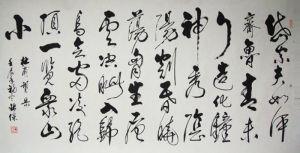 岱宗夫如何
齊魯青未
了造化鐘
神秀陰
陽割昏曉
蕩胸生層
雲決眦入歸
鳥會當凌絕
頂一覽眾山
小
杜甫望岳